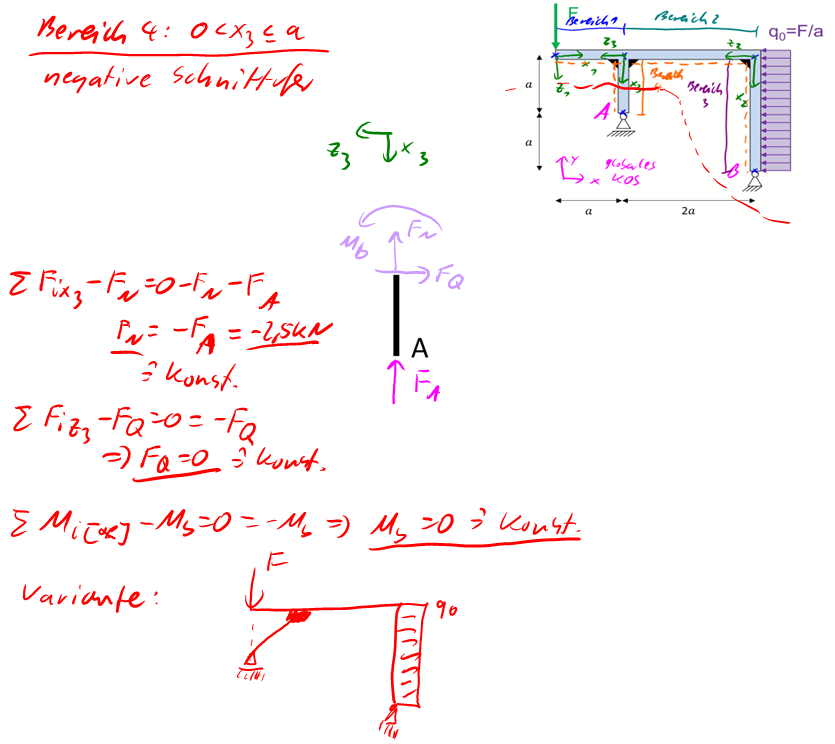 Bereich 4: 0<x₃≤a
negative Schnittufer
F
Bereich 1
Bereich 2
q₀=F/a
z₃
z₂
x₁
z₁
x₃
x₂
a
Bereich
Bereich 3
A
a
B
y
x
globales
KOS
a
2a
z₃
x₃
M_b
F_N
F_Q
A
F_A
Σ F_ix₃ - F_N = 0 - F_N - F_A
F_N = -F_A = -2,5kN
≙ konst.
Σ F_iz₃ - F_Q = 0 = -F_Q
=> F_Q = 0 ≙ konst.
- M_b = 0 = -M_b => M_b = 0 ≙ konst.
Variante:
F
q₀